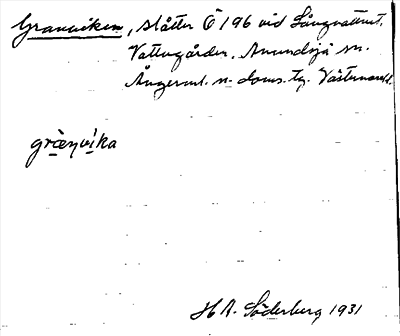 Granviken, slåtter Ö 196 vid Långvattnet,
Vattengården, Anundsjö sn.
Ångerml. n. doms. tg. Västernorrl.
græ̀nvika
H A. Söderberg 1931